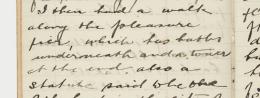 I then had a walk
along the pleasure
pier, which has baths
underneath and a tower
at the end. also a
statue said to be the